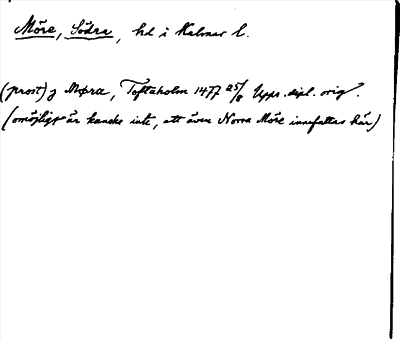 Möre, Södra, hd i Kalmar l.
(prost) j Møræ, Toftaholm 1477 25/8 Upps. dipl. orig.
(omöjligt är kanske inte, att även Norra Möre innefattas här)